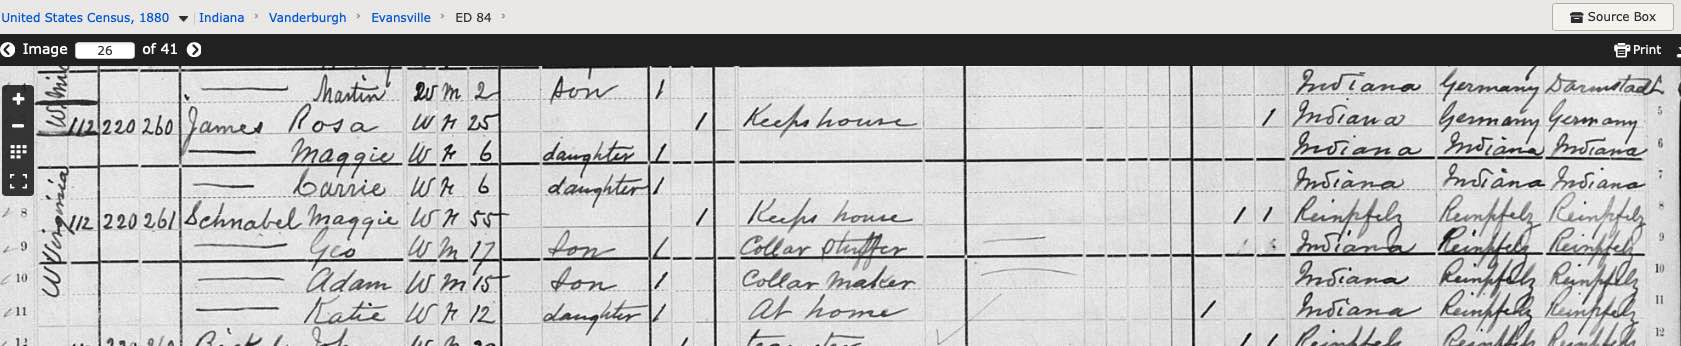 United States Census, 1880 ▼ Indiana › Vanderburgh › Evansville › ED 84 ›
Source Box
Image 26 of 41
Print
Martin W M 2 Son 1 Indiana Germany Darmstadt
112 220 260 James Rosa W F 25 1 Keeps house 1 Indiana Germany Germany 5
Maggie W F 6 daughter 1 Indiana Indiana Indiana 6
Carrie W F 6 daughter 1 Indiana Indiana Indiana 7
8 112 220 261 Schnabel Maggie W F 55 1 Keeps house 1 1 Reinpfelz Reinpfelz Reinpfelz 8
9 Geo W M 17 Son 1 Collar Stuffer Indiana Reinpfelz Reinpfelz 9
10 Adam W M 15 Son 1 Collar maker Indiana Reinpfelz Reinpfelz 10
11 Katie W F 12 daughter 1 At home 1 Indiana Reinpfelz Reinpfelz 11
12
W Virginia